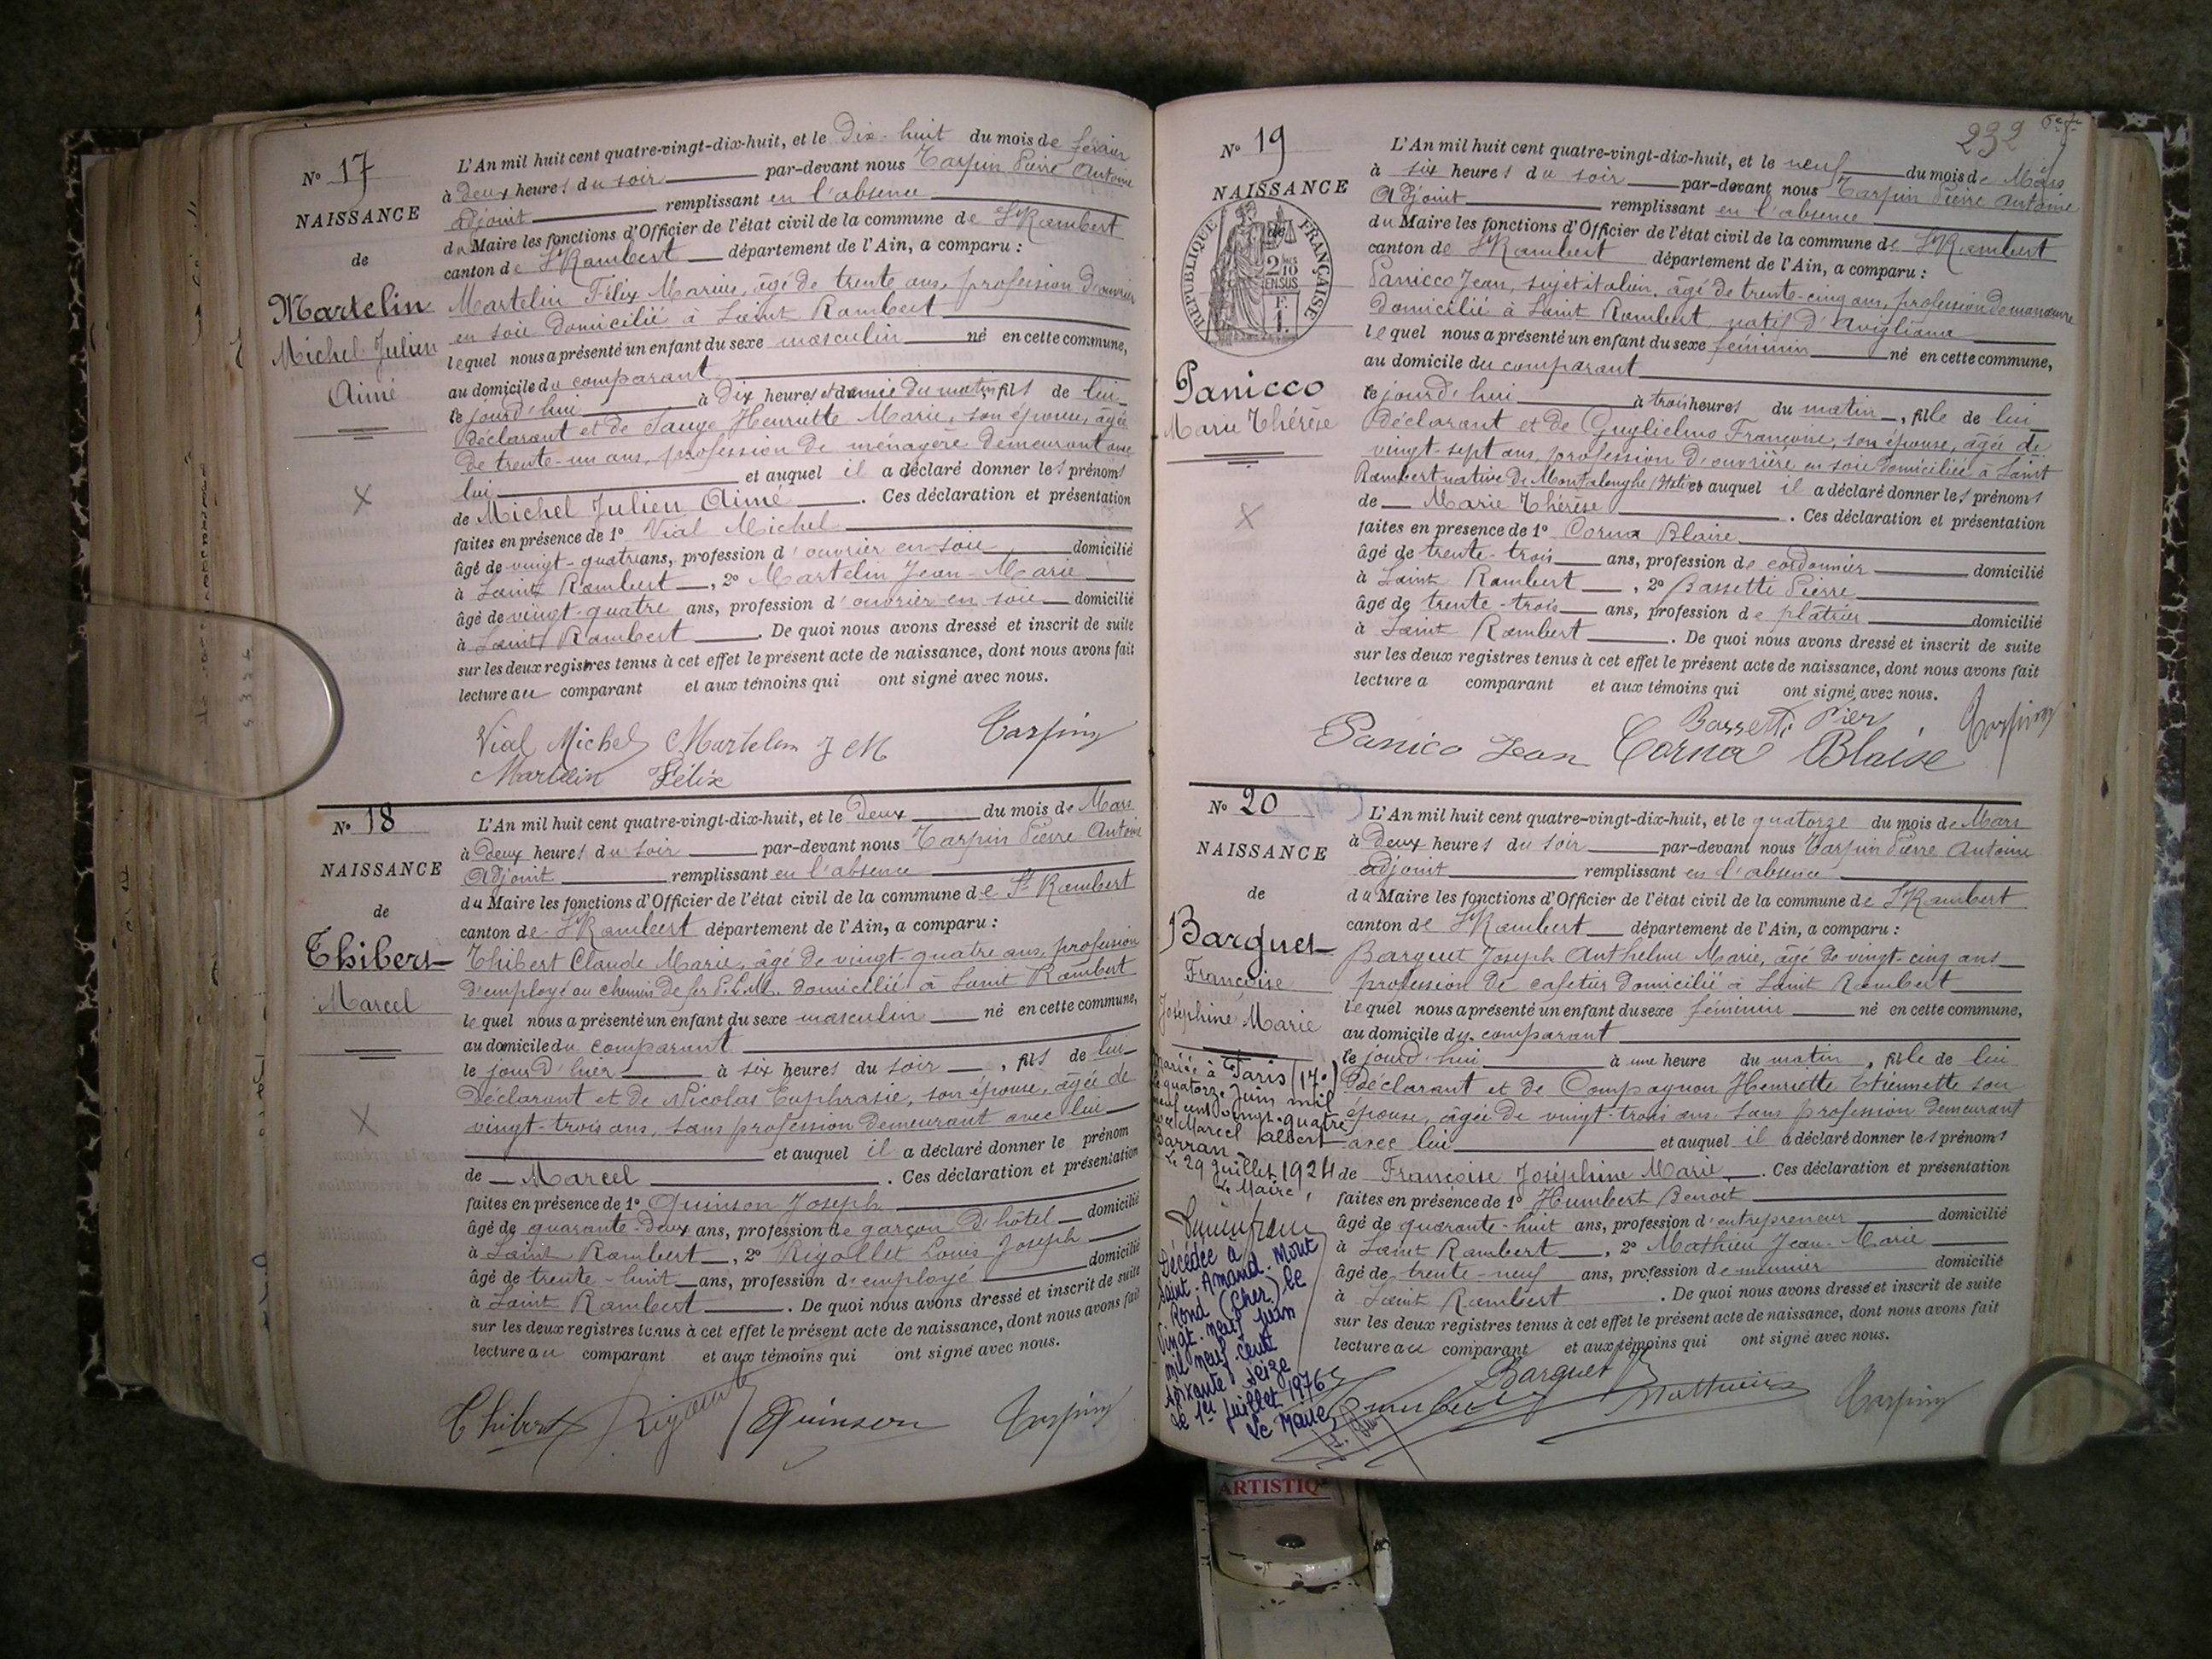 N° 17
NAISSANCE
de
Martelin
Michel Julien
Aimé
L'An mil huit cent quatre-vingt-dix-huit, et le Dix-huit du mois de février
à deux heures du soir par-devant nous Tarpin Pierre Antoine
adjoint remplissant en l'absence
du Maire les fonctions d'Officier de l'état civil de la commune de St Rambert
canton de St Rambert département de l'Ain, a comparu :
Martelin Félix Marius, âgé de trente ans, profession d'ouvrier
en soie domicilié à Saint Rambert
lequel nous a présenté un enfant du sexe masculin né en cette commune,
au domicile du comparant
le jourd'hui à dix heures et demie du matin, fils de lui
déclarant et de Sauge Henriette Marie, son épouse, âgée
de trente-un ans, profession de ménagère demeurant avec
lui et auquel il a déclaré donner les prénoms
de Michel Julien Aimé. Ces déclaration et présentation
faites en présence de 1° Vial Michel
âgé de vingt-quatre ans, profession d'ouvrier en soie domicilié
à Saint Rambert, 2° Martelin Jean-Marie
âgé de vingt-quatre ans, profession d'ouvrier en soie domicilié
à Saint Rambert. De quoi nous avons dressé et inscrit de suite
sur les deux registres tenus à cet effet le présent acte de naissance, dont nous avons fait
lecture au comparant et aux témoins qui ont signé avec nous.
Vial Michel Martelin J M Tarpin
Martelin Félix
N° 18
NAISSANCE
de
Thibert
Marcel
L'An mil huit cent quatre-vingt-dix-huit, et le deux du mois de Mars
à deux heures du soir par-devant nous Tarpin Pierre Antoine
Adjoint remplissant en l'absence
du Maire les fonctions d'Officier de l'état civil de la commune de St Rambert
canton de St Rambert département de l'Ain, a comparu :
Thibert Claude Marie, âgé de vingt-quatre ans, profession
d'employé au chemin de fer P.L.M. domicilié à Saint Rambert
lequel nous a présenté un enfant du sexe masculin né en cette commune,
au domicile du comparant
le jour d'hier à six heures du soir, fils de lui
déclarant et de Nicolas Euphrasie, son épouse, âgée de
vingt-trois ans, sans profession demeurant avec lui
et auquel il a déclaré donner le prénom
de Marcel. Ces déclaration et présentation
faites en présence de 1° Quinson Joseph
âgé de quarante-deux ans, profession de garçon d'hôtel domicilié
à Saint Rambert, 2° Rigollet Louis Joseph
âgé de trente-huit ans, profession d'employé domicilié
à Saint Rambert. De quoi nous avons dressé et inscrit de suite
sur les deux registres tenus à cet effet le présent acte de naissance, dont nous avons fait
lecture au comparant et aux témoins qui ont signé avec nous.
Thibert Quinson Tarpin
232
N° 19
NAISSANCE
de
RÉPUBLIQUE FRANÇAISE
2/10 EN SUS
Panicco
Marie Thérèse
L'An mil huit cent quatre-vingt-dix-huit, et le neuf du mois de Mars
à six heures du soir par-devant nous Tarpin Pierre Antoine
Adjoint remplissant en l'absence
du Maire les fonctions d'Officier de l'état civil de la commune de St Rambert
canton de St Rambert département de l'Ain, a comparu :
Panicco Jean, sujet italien, âgé de trente-cinq ans, profession de manœuvre
domicilié à Saint Rambert, natif d'Avigliana
lequel nous a présenté un enfant du sexe féminin né en cette commune,
au domicile du comparant
le jourd'hui à trois heures du matin, fille de lui
déclarant et de Guglielmo Françoise, son épouse, âgée de
vingt-sept ans, profession d'ouvrière en soie domiciliée à Saint
Rambert native de Montalenghe (Italie) et auquel il a déclaré donner les prénoms
de Marie Thérèse. Ces déclaration et présentation
faites en présence de 1° Corna Blaise
âgé de trente-trois ans, profession de cordonnier domicilié
à Saint Rambert, 2° Bassetti Pierre
âgé de trente-trois ans, profession de plâtrier domicilié
à Saint Rambert. De quoi nous avons dressé et inscrit de suite
sur les deux registres tenus à cet effet le présent acte de naissance, dont nous avons fait
lecture a comparant et aux témoins qui ont signé avec nous.
Bassetti Pier Tarpin
Panico Jean Corna Blaise
N° 20
NAISSANCE
de
Barquet
Françoise
Joséphine Marie
Mariée à Paris (17e)
le quatorze Juin mil
neuf cent vingt-quatre
avec Marcel Albert
Barran
Le 29 Juillet 1924
Le Maire,
Décédée à
Saint-Amand-Mont
Rond (Cher) le
vingt-neuf juin
mil neuf cent
soixante seize
Le 1er juillet 1976
Le Maire
L'An mil huit cent quatre-vingt-dix-huit, et le quatorze du mois de Mars
à deux heures du soir par-devant nous Tarpin Pierre Antoine
adjoint remplissant en l'absence
du Maire les fonctions d'Officier de l'état civil de la commune de St Rambert
canton de St Rambert département de l'Ain, a comparu :
Barquet Joseph Anthelme Marie, âgé de vingt-cinq ans
profession de cafetier domicilié à Saint Rambert
lequel nous a présenté un enfant du sexe féminin né en cette commune,
au domicile du comparant
le jourd'hui à une heure du matin, fille de lui
déclarant et de Compagnon Henriette Etiennette son
épouse, âgée de vingt-trois ans sans profession demeurant
avec lui et auquel il a déclaré donner les prénoms
de Françoise Joséphine Marie. Ces déclaration et présentation
faites en présence de 1° Humbert Benoit
âgé de quarante-huit ans, profession d'entrepreneur domicilié
à Saint Rambert, 2° Mathieu Jean-Marie
âgé de trente-neuf ans, profession de meunier domicilié
à Saint Rambert. De quoi nous avons dressé et inscrit de suite
sur les deux registres tenus à cet effet le présent acte de naissance, dont nous avons fait
lecture au comparant et aux témoins qui ont signé avec nous.
Barquet
Mathieu Tarpin
ARTISTIQ